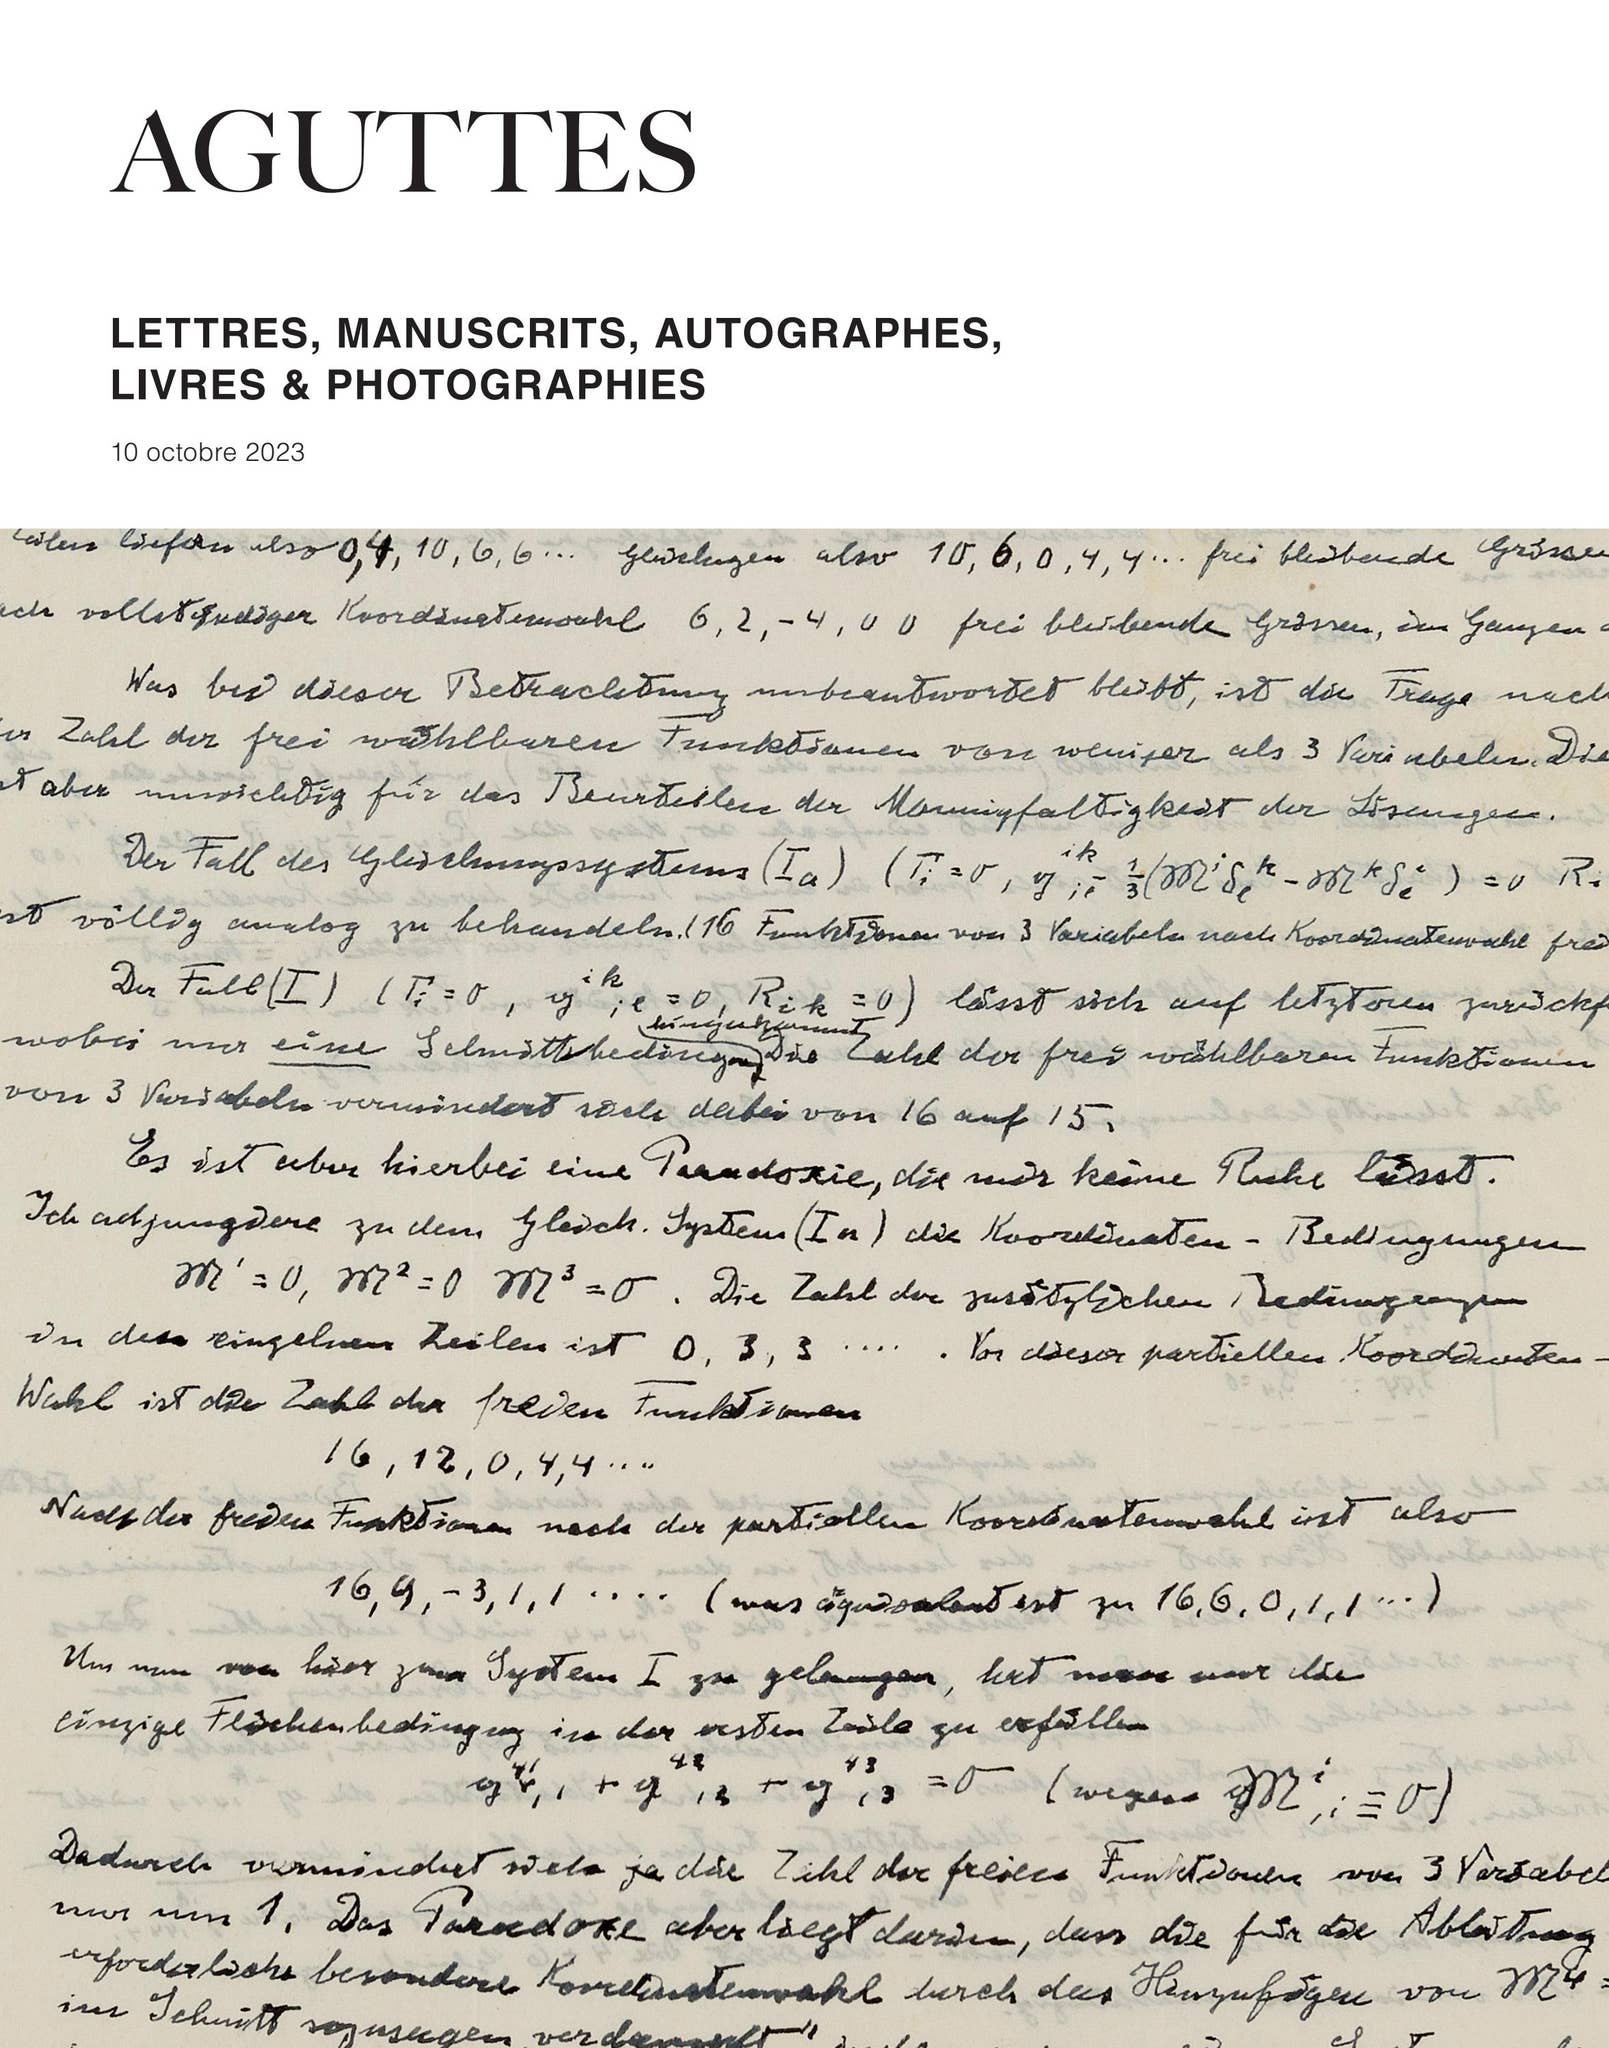 AGUTTES
LETTRES, MANUSCRITS, AUTOGRAPHES,
LIVRES & PHOTOGRAPHIES
10 octobre 2023
liefern also 0,4, 10, 6, 6 ... Gleichungen also 10, 6, 0, 4, 4 ... frei bleibende Grössen
vollständiger Koordinatenwahl 6, 2, -4, 0 0 frei bleibende Grössen, im Ganzen
Was bei dieser Betrachtung unbeantwortet bleibt, ist die Frage nach
Zahl der frei wählbaren Funktionen von weniger als 3 Variabeln. Die
aber unwichtig für das Beurteilen der Mannigfaltigkeit der Lösungen.
Der Fall des Gleichungssystems (Ia) (Γi = 0, g^{ik}_{;l} - 1/3 (𝔐^i δ_l^k - 𝔐^k δ_l^i) = 0 R
völlig analog zu behandeln. (16 Funktionen von 3 Variabeln nach Koordinatenwahl frei
Der Fall (I) (Γi = 0, g^{ik}_{;l} = 0, R_{ik} = 0) lässt sich auf letzteren zurückf
hinzukommt
wobei nur eine Schnittbedingung Die Zahl der frei wählbaren Funktionen
von 3 Variabeln vermindert sich dabei von 16 auf 15.
Es ist aber hierbei eine Paradoxie, die mir keine Ruhe lässt.
Ich adjungiere zu dem Gleich. System (Ia) die Koordinaten - Bedingungen
𝔐^1 = 0, 𝔐^2 = 0 𝔐^3 = 0. Die Zahl der zusätzlichen Bedingungen
in den einzelnen Zeilen ist 0, 3, 3 .... . Vor dieser partiellen Koordinaten-
Wahl ist die Zahl der freien Funktionen
16, 12, 0, 4, 4 ....
der freien Funktionen nach der partiellen Koordinatenwahl ist also
16, 9, -3, 1, 1 .... (was äquivalent ist zu 16, 6, 0, 1, 1 ...)
Um nun von hier zum System I zu gelangen, hat man nur die
einzige Flächenbedingung in der ersten Zeile zu erfüllen
g^{41}_{,1} + g^{42}_{,2} + g^{43}_{,3} = 0 (wegen 𝔐^i_{,i} ≡ 0)
Dadurch vermindert sich ja die Zahl der freien Funktionen von 3 Variabel
nur um 1. Das Paradoxe aber liegt darin, dass die für die Ableitung
erforderliche besondere Koordinatenwahl durch das Hinzufügen von 𝔐^4 =
im Schnitt sozusagen